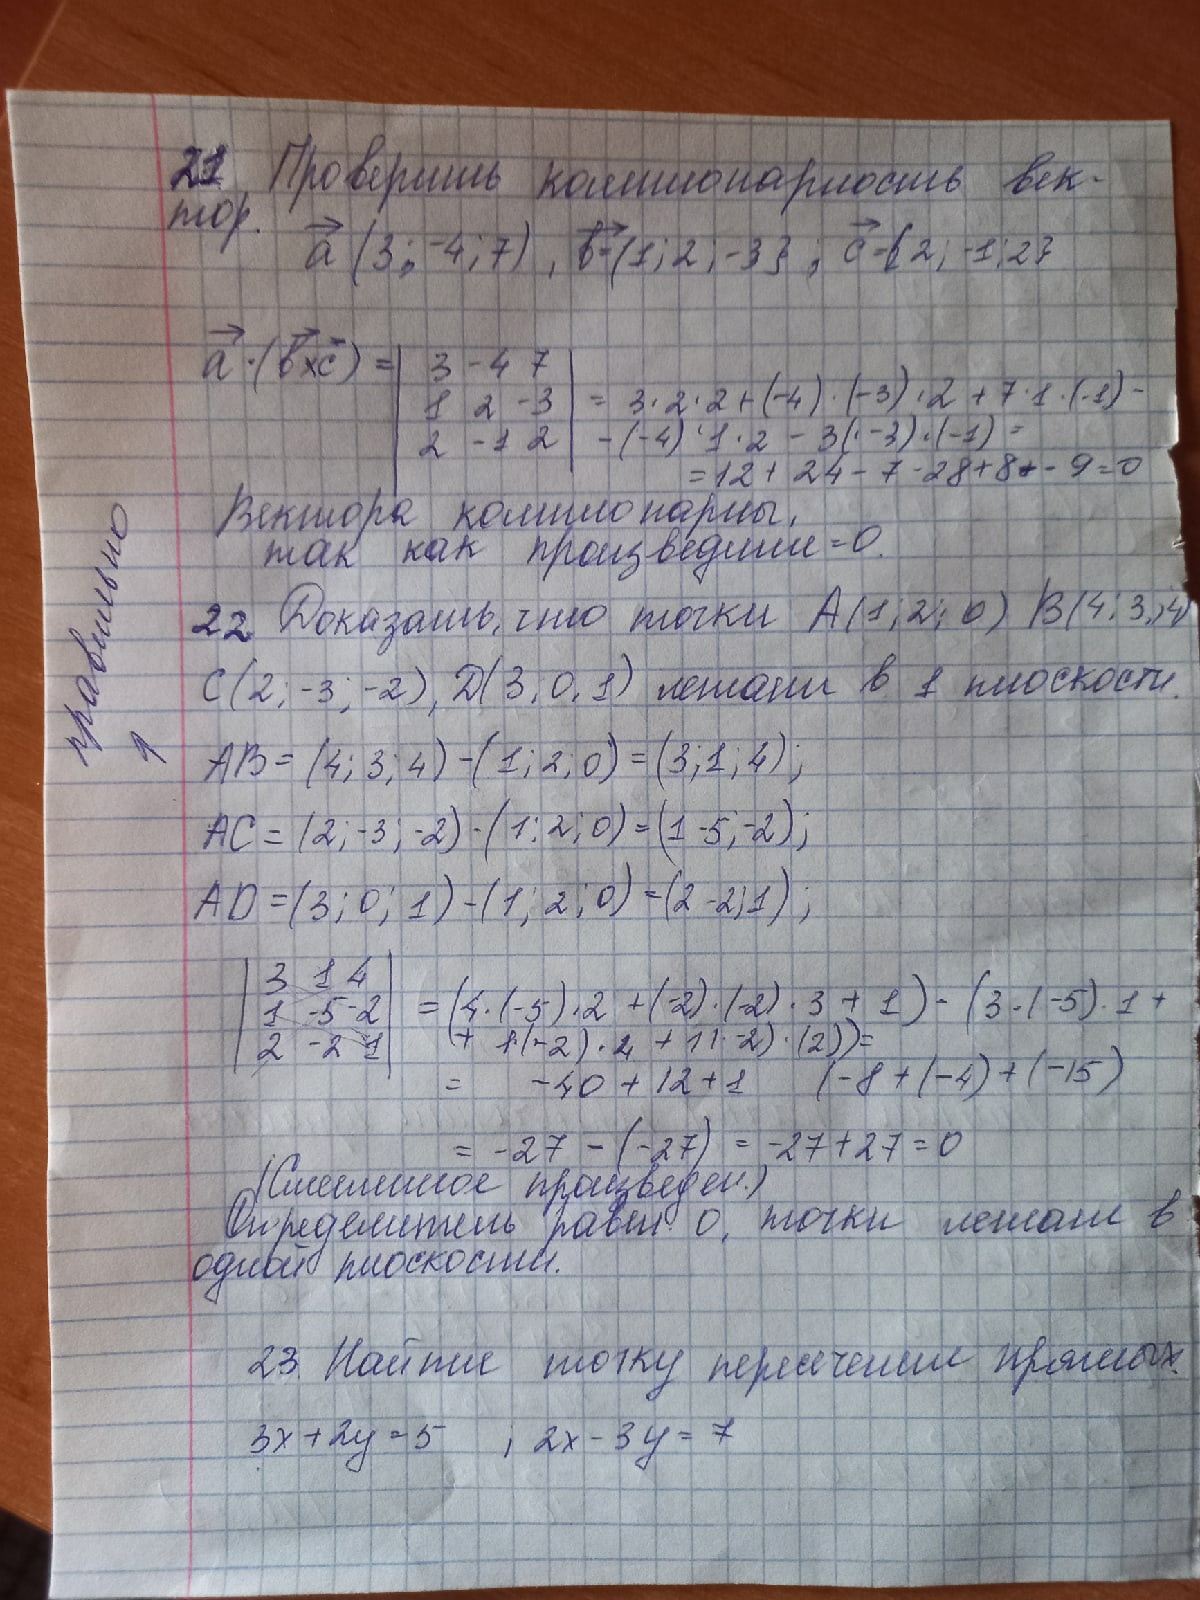 21. Проверить компланарность век-
тор.
a (3; -4; 7), b-{1; 2; -3}; c-{2; -1; 2}
a·(b×c) = | 3 -4 7 |
| 1 2 -3 | = 3·2·2+(-4)·(-3)·2+7·1·(-1)-
| 2 -1 2 | -(-4)·1·2-3(·-3)·(-1)=
=12+24-7-28+8-9=0
Вектора компланарны,
так как произведение=0.
правильно
1
22 Доказать, что точки A(1; 2; 0) B(4; 3; 4)
C(2; -3; -2), D(3; 0, 1) лежат в 1 плоскости.
AB=(4; 3; 4)-(1; 2; 0)=(3; 1; 4);
AC=(2; -3; -2)-(1; 2; 0)=(1 -5; -2);
AD=(3; 0; 1)-(1; 2; 0)=(2 -2; 1);
| 3 1 4 |
| 1 -5 -2 | =(4·(-5)·2+(-2)·(-2)·3+1)-(3·(-5)·1+
| 2 -2 1 | + 1·(-2)·4+1(·-2)·(2))=
= -40+12+1 (-8+(-4)+(-15)
= -27-(-27)=-27+27=0
(Смешанное произведен.)
Определитель равен 0, точки лежат в
одной плоскости.
23. Найти точку пересечения прямых
3x+2y=5 ; 2x-3y=7